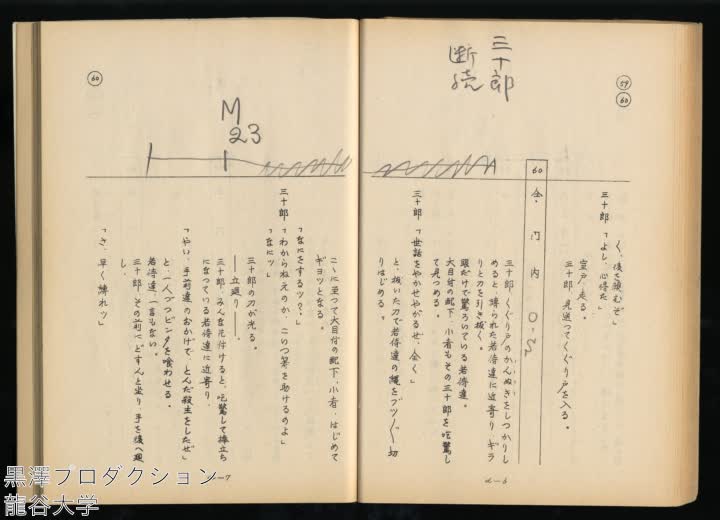 三十郎
断続
59
60
く、後を頼むぞ」
三十郎「よし、心得た」
室戸、走る。
三十郎、見送ってくぐり戸を入る。
60 仝・門内 O-3
三十郎、くぐり戸のかんぬきをしつかりし
めると、縛られた若侍達に近寄り、ギラ
リと刀を引き抜く。
眼だけで驚ろいている若侍達。
大目付の配下、小者もその三十郎を吃驚し
て見つめる。
三十郎「世話をやかせやがるぜ、全く」
と、抜いた刀で若侍達の縄をブツ〳〵切
りはじめる。
d-6
60
M
23
こゝに至つて大目付の配下、小者、はじめて
ギヨツとなる。
「なにをするツ？」
三十郎「わからねえのか、こいつ等を助けるのよ」
「なにツ」
三十郎の刀が光る。
――立廻り――。
三十郎、みんな片付けると、吃驚して棒立ち
になつている若侍達に近寄り、
「やい、手前達のおかげで、とんだ殺生をしたぜ」
と、一人づつビンタを喰わせる。
若侍達、一言もない。
三十郎、その前にどすんと坐り、手を後へ廻
し、
「さ、早く縛れツ」
d-7
黒澤プロダクション
龍谷大学